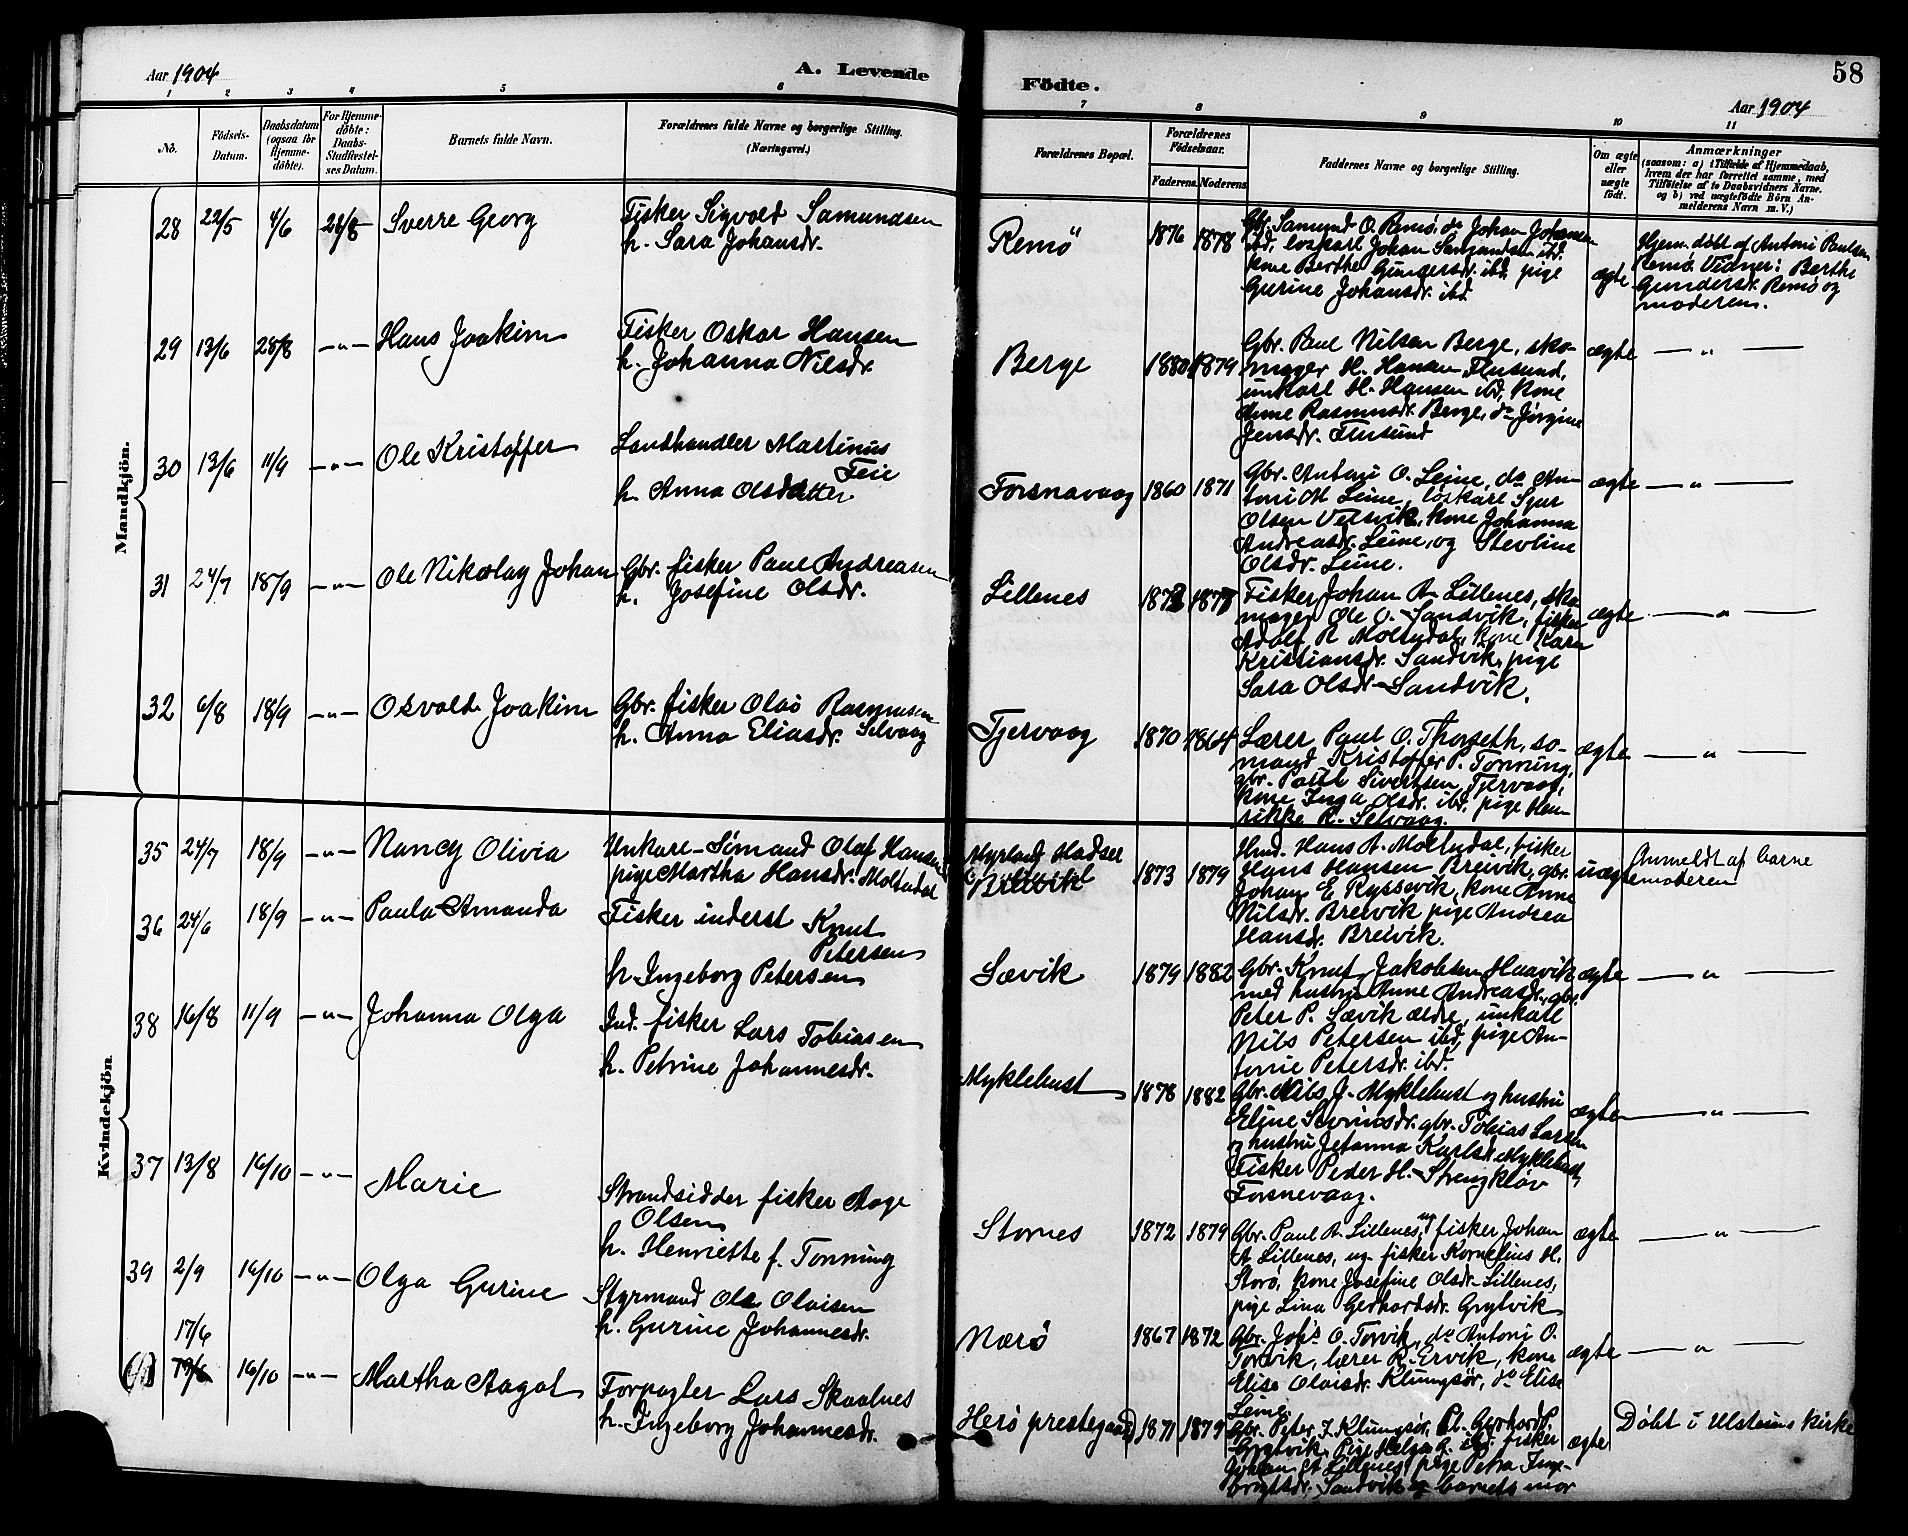 Aar 1904
A. Levende
Födte.
58
Aar 1904
1 2 3 4 5 6 7 8 9 10 11
No.
Födsels-
Datum.
Daabsdatum
(ogsaa for
Hjemme-
döbte).
For Hjemme-
döbte:
Daabs-
Stadfæstel-
ses Datum.
Barnets fulde Navn.
Forældrenes fulde Navne og borgerlige Stilling.
(Næringsvei.)
Forældrenes Bopæl.
Forældrenes
Födselsaar.
Faderens.
Moderens.
Faddernes Navne og borgerlige Stilling.
Om ægte
eller
uægte
födt.
Anmærkninger
(saasom: a) i Tilfælde af Hjemmedaab,
hvem der har forrettet samme, med
Tilföielse af to Daabsvidners Navne.
og b) ved uægtefödte Börn An-
melderens Navn m. V.)
Mandkjön.
28 22/5 4/6 28/8 Sverre Georg
Fisker Sigvald Samundsen
h. Sara Johansdr.
Remö 1876 1878
Gbr. Samund O. Remö, do Johan Johansen
ibd, löskarl Johan Samundsen ibd.
kone Berthe Gundersdr. ibd. pige
Gurine Johansdr. ibd.
ægte
Hjem. döbt af Antoni Paulsen
Remö. Vidner: Berthe
Gundersdr. Remö og
moderen.
29 13/6 28/8 — " — Hans Joakim
Fisker Oskar Hansen
h. Johanna Nilsdr.
Berge 1880 1879
Gbr. Paul Nilsen Berge, sko-
mager H. Hansen Flusund,
unkarl H. Hansen ibd, kone
Anne Rasmusdr. Berge, do Jörgine
Jensdr. Flusund
ægte — " —
30 13/6 11/9 — " — Ole Kristoffer
Landhandler Martinus
Teie
h. Anna Olsdatter
Fosnavaag 1860 1871
Gbr. Antoni O. Leine, do An-
toni M Leine, löskarl Sjur
Olsen Vetsvik, kone Johanna
Andreasdr. Leine, og Stevline
Olsdr. Leine.
ægte — " —
31 24/7 18/9 — " — Ole Nikolay Johan
Gbr. fisker Paul Andreasen
h. Josefine Olsdr.
Lillenes 1873 1877
Fisker Johan A. Lillenes, sko
mager Ole O. Sandvik, fisker
Adolf R Moltudal, kone Kara
Kristiansdr. Sandvik, pige
Sara Olsdr Sandvik.
ægte — " —
32 6/8 18/9 — " — Osvald Joakim
Gbr. fisker Olao Rasmusen
h. Anna Eliasdr. Selvaag
Tjervaag 1870 1864
Lærer Paul O. Thorseth, sö-
mand Kristoffer P. Tonning,
gbr. Paul Sivertsen Tjervaag,
kone Inga Olsdr. ibd, pige Hen-
rikke R. Selvaag.
ægte — " —
Kvindekjön.
35 24/7 18/9 — " — Nancy Olivia
Unkarl-Sömand Olaf Hansen
pige Martha Hansdr. Moltudal
Myrland Hadsel
Breivik 1873 1879
Hmd. Hans A. Moltudal, fisker
Hans Hansen Breivik, gbr.
Johan E Ryssevik, kone Anne
Nilsdr. Breivik pige Andrea
Hansdr. Breivik.
uægte
Anmeldt af barne
moderen
36 24/6 18/9 — " — Paula Amanda
Fisker inderst Knut
Petersen
h. Ingeborg Petersen
Sævik 1879 1882
Gbr. Knut Jakobsen Haavik
med hustru Anne Andreasdr, gbr.
Peter P. Sævik ældre, unkarl
Nils Petersen ibd, pige An-
tonie Petersdr. ibd.
ægte — " —
38 16/8 11/9 — " — Johanna Olga
Ind. fisker Lars Tobiasen
h. Petrine Johannesdr.
Myklebust 1878 1882
Gbr. Nils J. Myklebust og hustru
Eline Severinsdr. gbr. Tobias Larsen
og hustru Jetanna Karlsdr. Myklebust,
Fisker Peder H. Strengklöv
Fosnevaag.
ægte — " —
37 13/8 16/10 — " — Marie
Strandsidder fisker Aage
Olsen
h. Henriette f. Tonning
Stornes 1872 1879
Gbr. Paul A. Lillenes, ug fisker Johan
A Lillenes, ug. fisker Kornelius H.
Storö, kone Josefine Olsdr. Lillenes,
pige Lina Gerhardsdr. Grytvik
ægte — " —
39 2/9 16/10 — " — Olga Gurine
Styrmand Ole Olaisen
h. Gurine Johannesdr.
Nærö 1867 1872
Gbr. Johs O. Torvik, do Antoni O.
Torvik, lærer R. Ervik, kone
Elise Olaisdr. Klungsör, do Elise
Leine.
ægte — " —
17/6
16/10 — " — Martha Aagot
Forpagter Lars Skaalnes
h. Ingeborg Johannesdr.
Herö prestegaard 1871 1879
Gbr. Peter J. Klungsör, Gerhard P.
Grytvik, Pige Helga G. ibd. fisker
Johan A Lillenes, pige Petra Inge-
brigtsdr. Sandvik og barnets mor
ægte
Döbt i Ulsteins Kirke